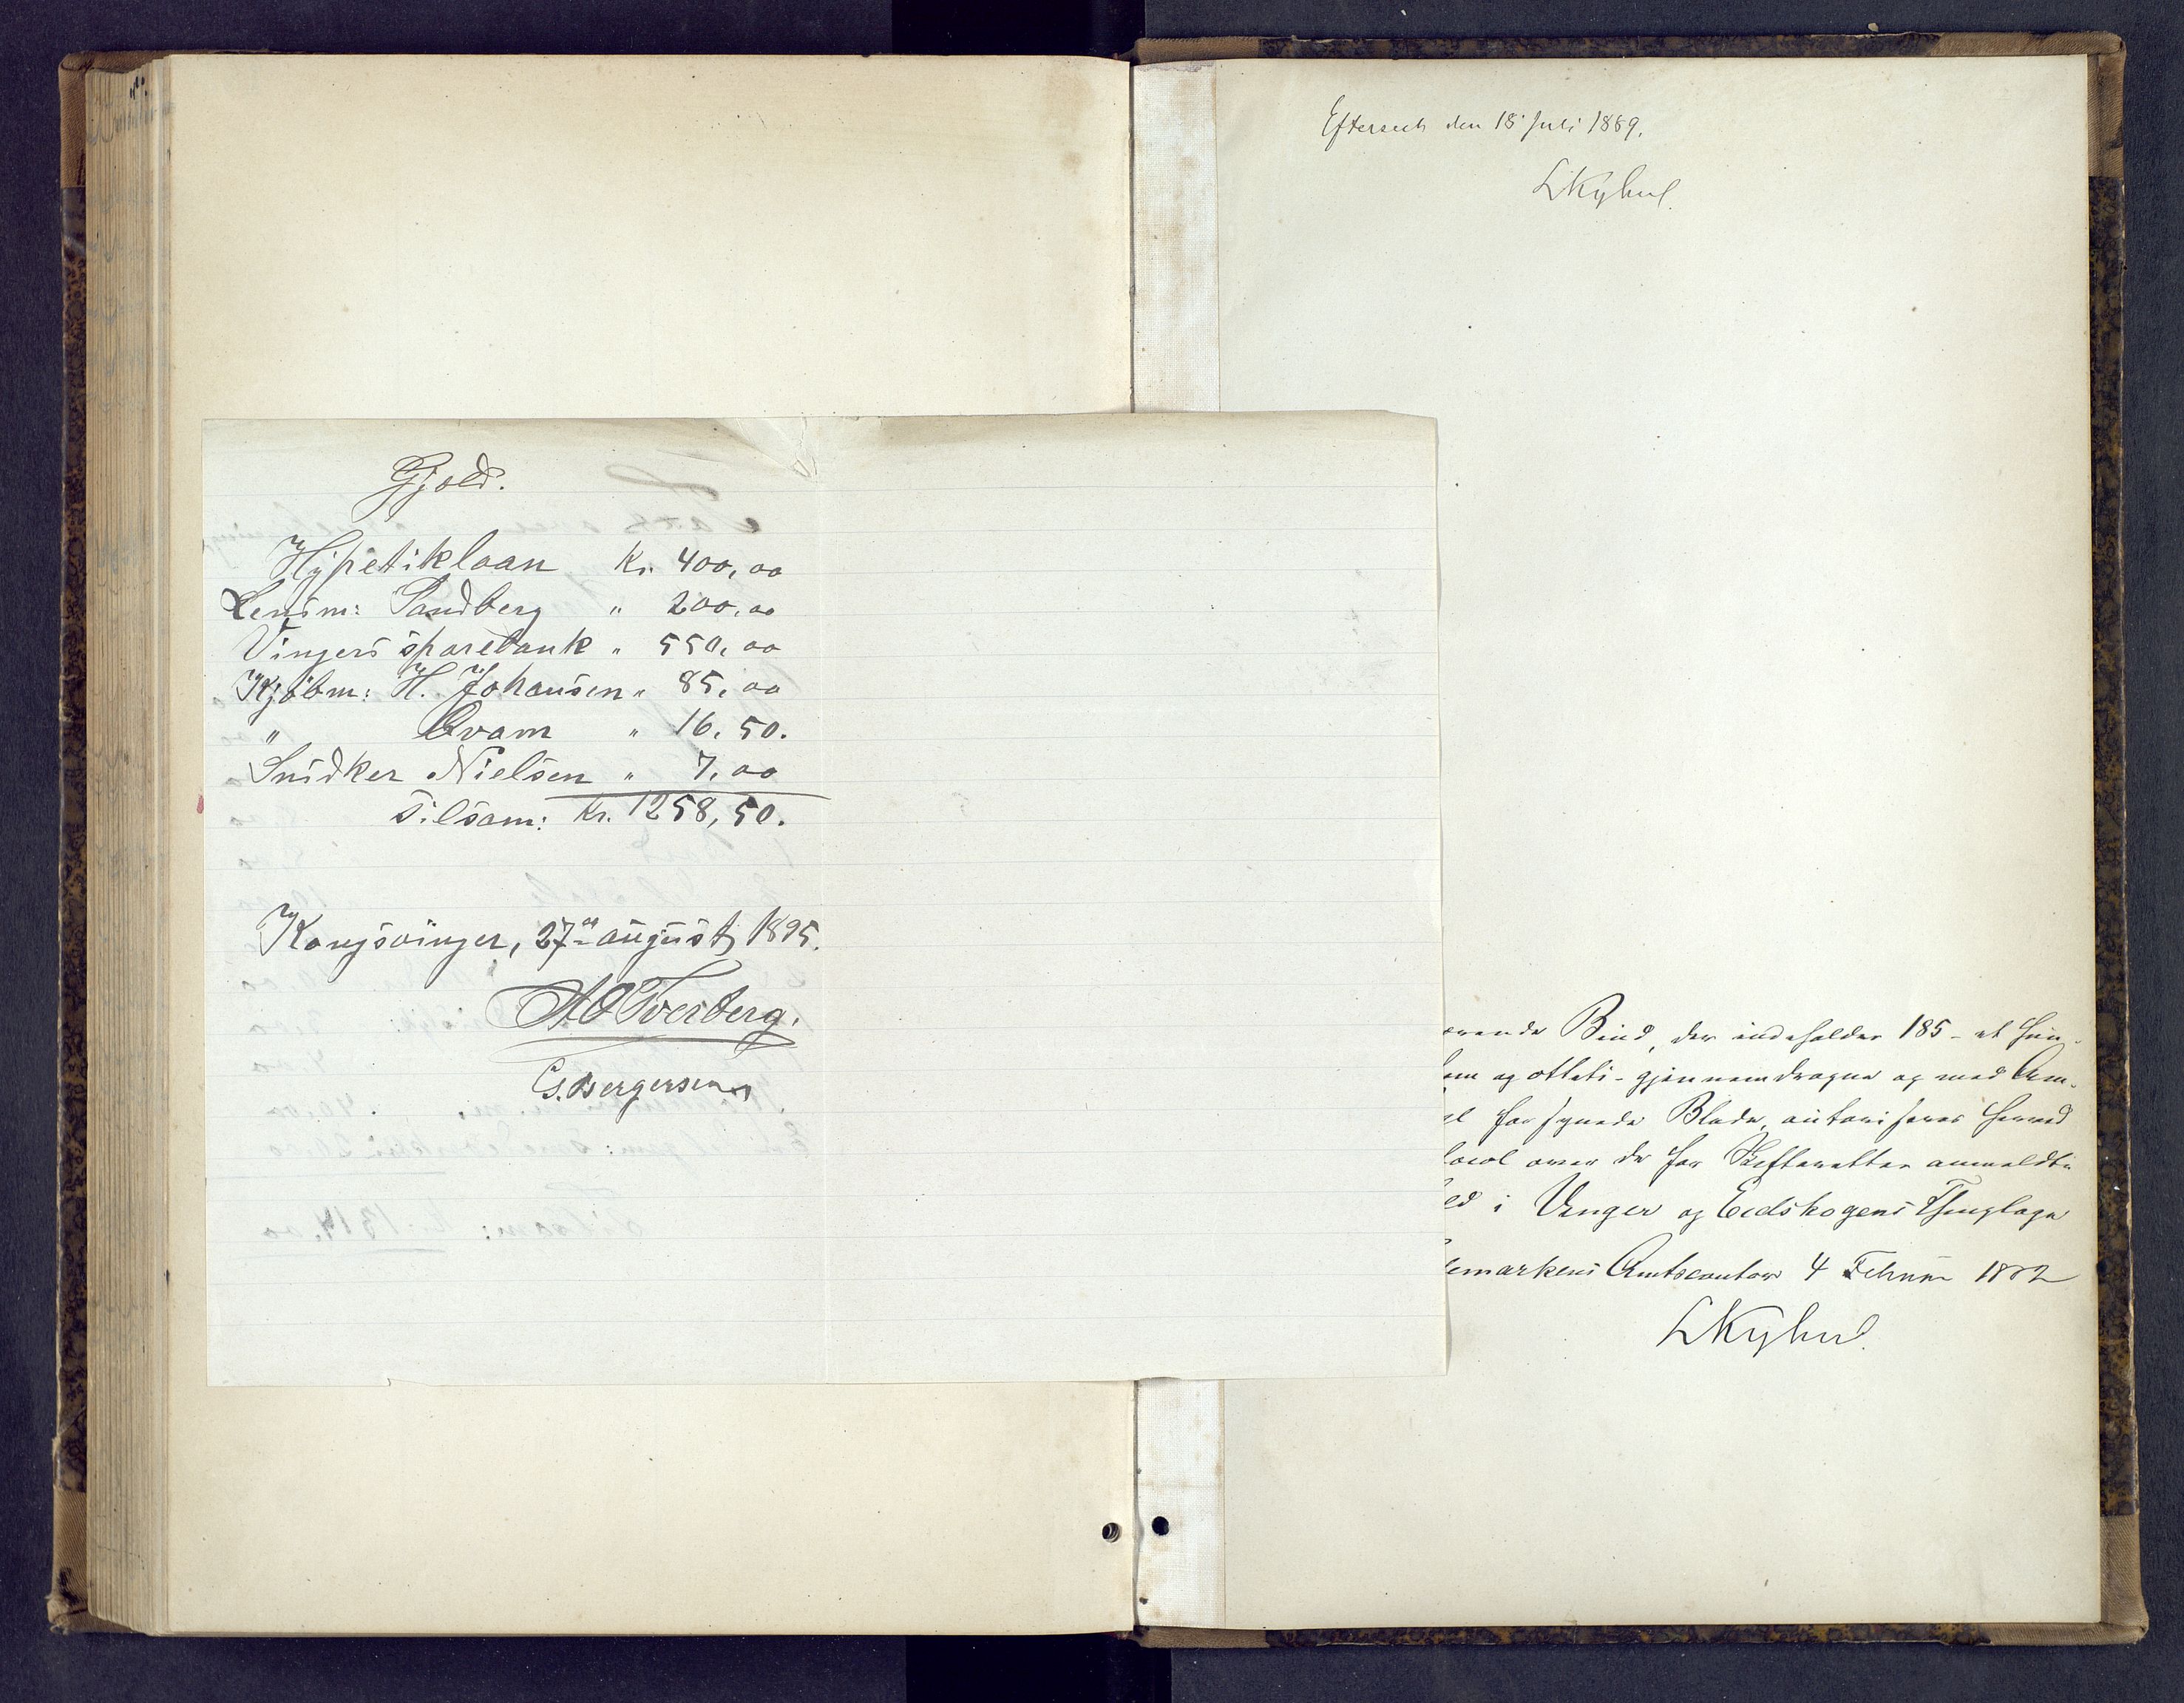 Gjæld.
Hypetiklaan Kr. 400,00
Lensm: Sandberg " 200,00
Vingers sparebank " 550,00
Kjøbm: H. Johansen " 85,00
" Qvam " 16,50.
Snidker Nielsen " 7,00
Tilsam: Kr. 1258,50.
Kongsvinger, 27de august 1895.
AO Tverberg.
G. Bergersen
Efterseet den 18 Juli 1889.
LKyhn
ærende Bind, der indeholder 185 - et hun-
em og otteti - gjennemdragne og med Am-
el forsynede Blade, autoriseres herved
tocol over de for Skifteretten anmeldte
ed i Vinger og Eidskogens Thinglage
emarkens Amtscontor 4 Februar 1882
LKyhn
Tilsam: Kr. 1314,00